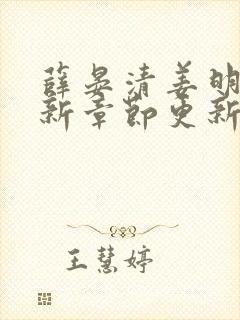 薛晏清姜明
新章节更新
王慧婷